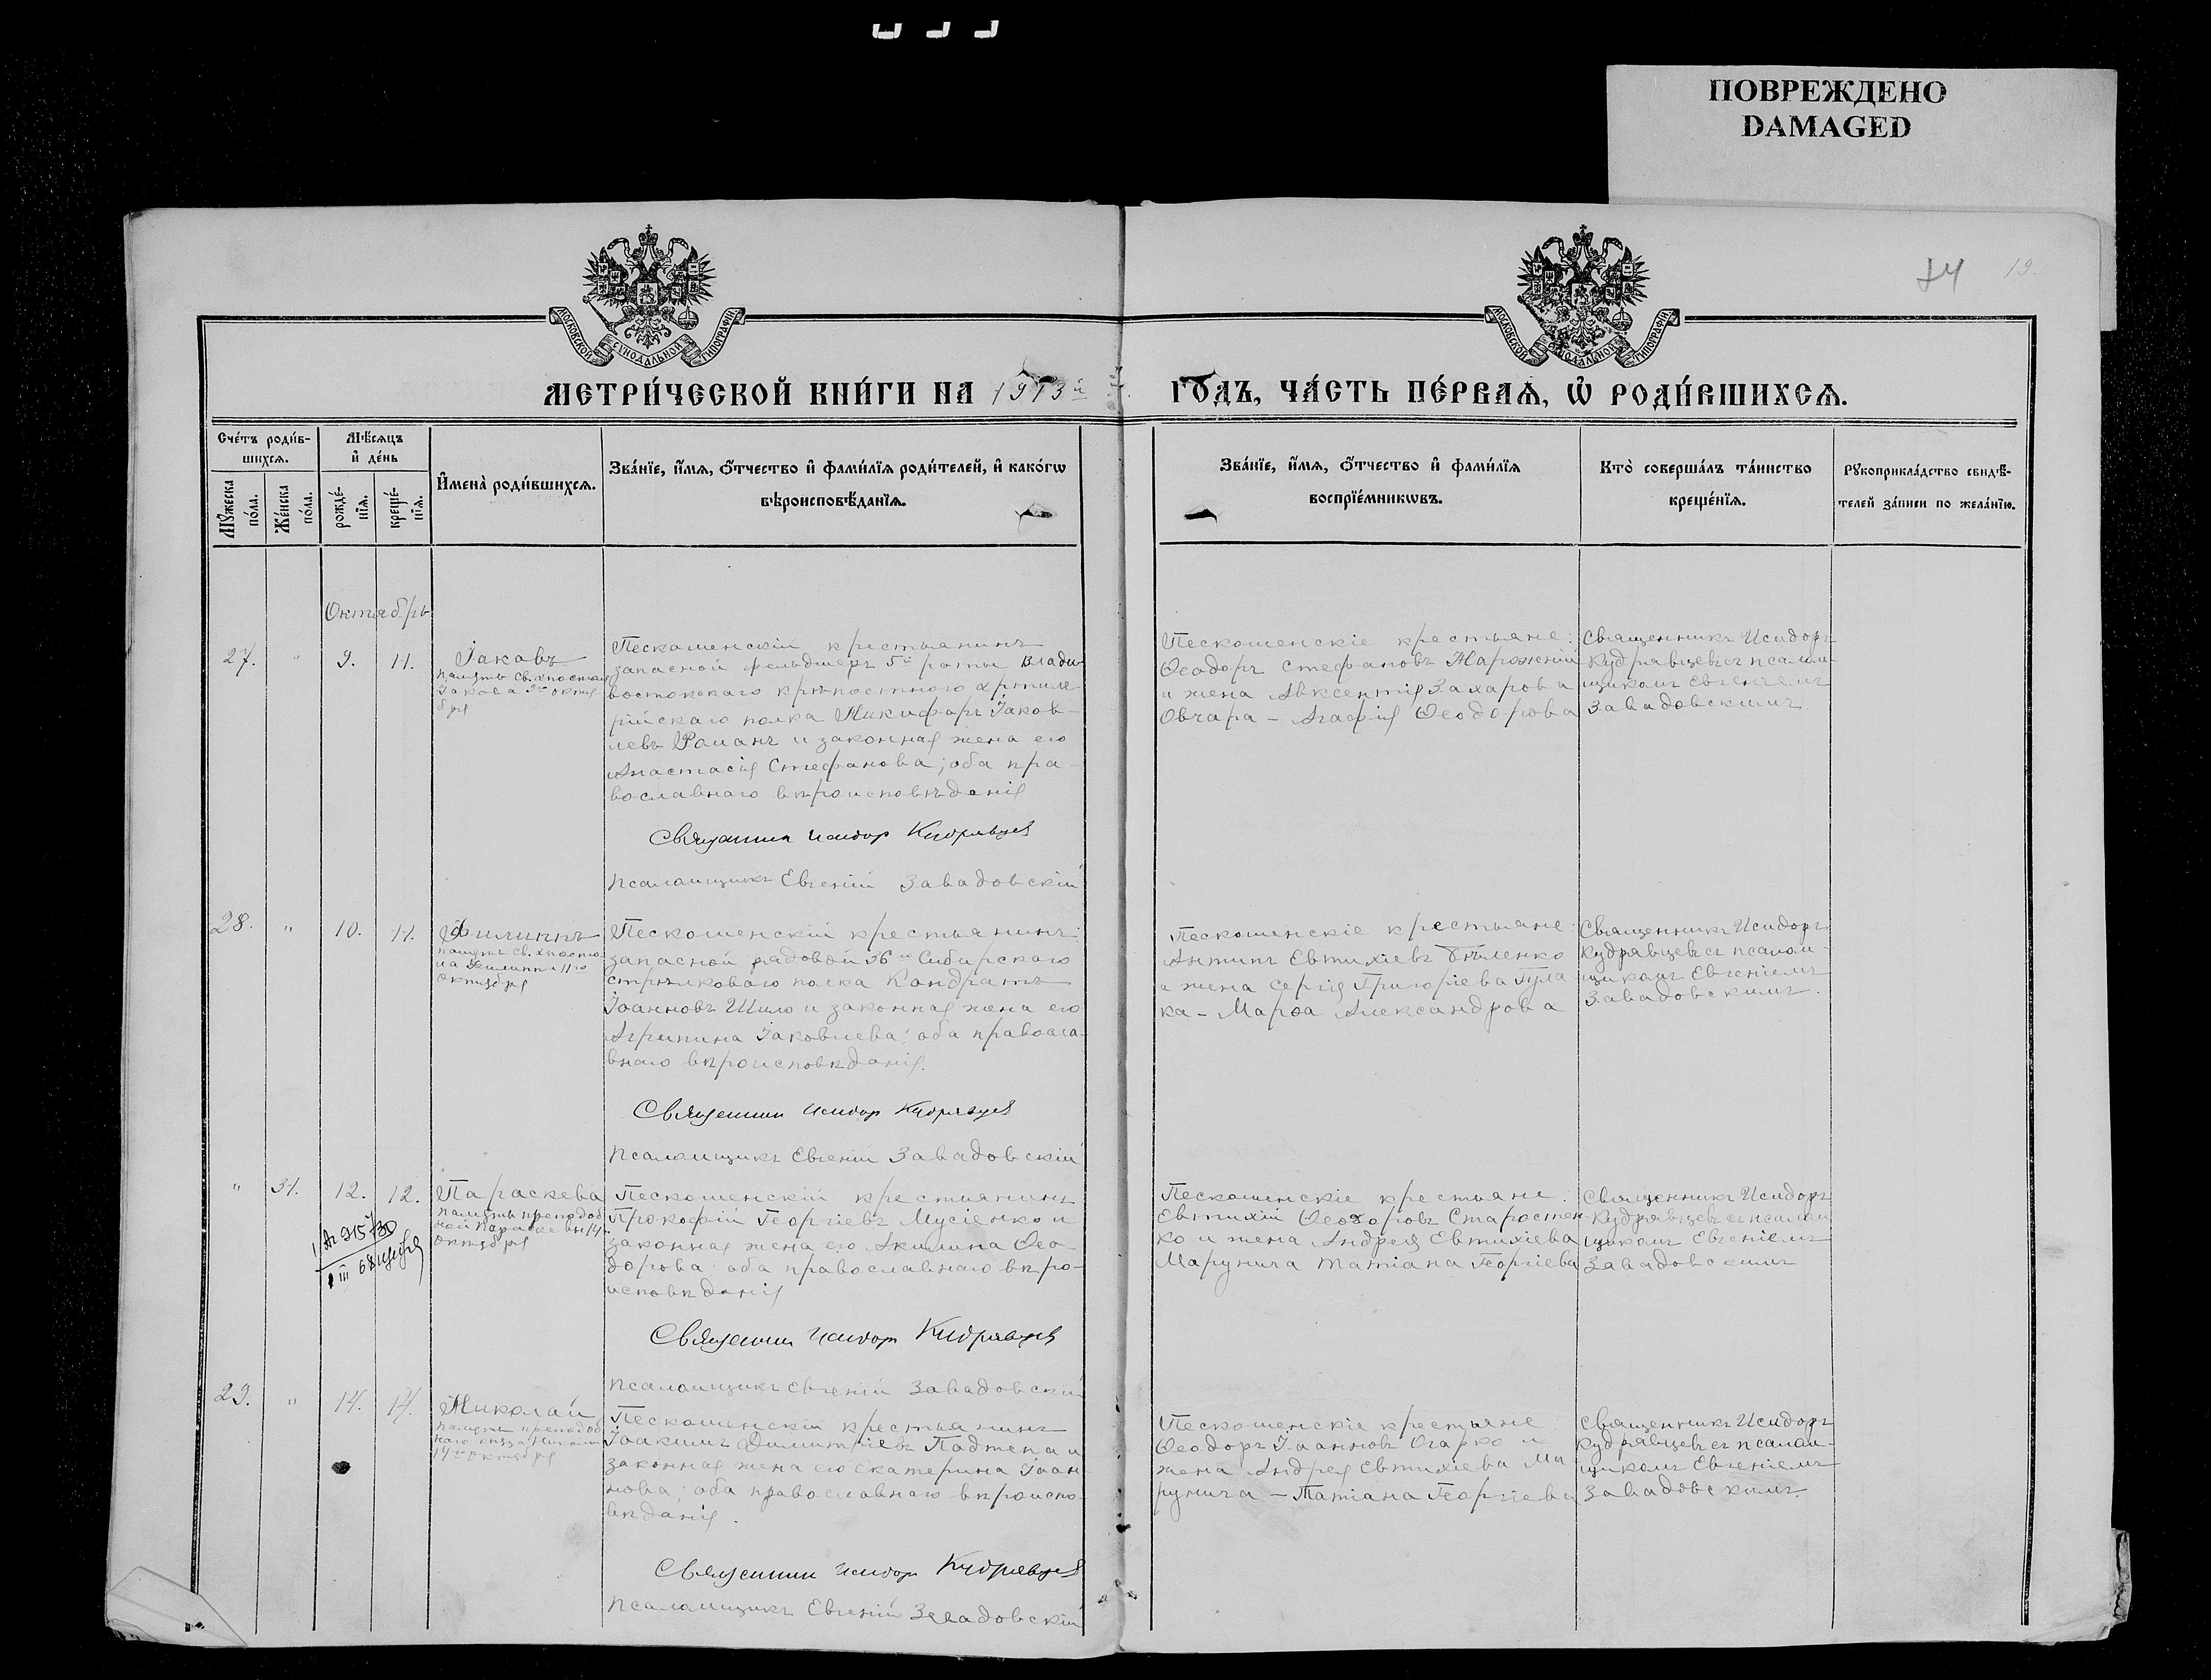 ПОВРЕЖДЕНО
DAMAGED
19.
МОСКОВСКОЙ СѴНОДАЛЬНОЙ ТИПОГРАФІИ
МОСКОВСКОЙ СѴНОДАЛЬНОЙ ТИПОГРАФІИ
МЕТРИ́ЧЕСКОЙ КНИ́ГИ НА 1913й ГОДЪ, ЧА́СТЬ ПЕ́РВАѦ, Ѡ҆ РОДИ́ВШИХСѦ.
Сче́тъ роди́в-
шихсѧ.
Мѣ́сѧцъ
и҆ де́нь
Мꙋ́жеска
по́ла.
Же́нска
по́ла.
рожде́-
нїѧ.
креще́-
нїѧ.
И҆мена̀ роди́вшихсѧ.
Зва́нїе, и҆́мѧ, ѻ҆́тчество и҆ фами́лїѧ роди́телей, и҆ како́гѡ
вѣроисповѣ́данїѧ.
Зва́нїе, и҆́мѧ, ѻ҆́тчество и҆ фами́лїѧ
воспрїе́мникѡвъ.
Кто̀ соверша́лъ та́инство
креще́нїѧ.
Рꙋкоприкла́дство свидѣ́-
телей за́писи по жела́нїю.
Октябрь
27. " 9. 11.
Іаковъ
память св. Апостола
Іакова 9го октя
бря
Пескошенскій крестьянинъ
запасной фельдшеръ 5й роты Влади
востокскаго крѣпостного Артиле
рійскаго полка Никифоръ Іаков-
левъ Романъ и законная жена его
Анастасія Стефанова; оба пра-
вославнаго вѣроисповѣданія
Священник Исидор Кудрявцев
Псаломщикъ Евгеній Завадовскій
Пескошенскіе крестьяне:
Ѳеодоръ Стефановъ Нарожній
и жена Авксентія Захарова
Овчара - Агафія Ѳеодорова
Священникъ Исидоръ
Кудрявцевъ съ псалом-
щикомъ Евгеніемъ
Завадовскимъ.
28. " 10. 11.
Филиппъ
память св. Апосто
ла Филиппа 11го
октября
Пескошенскій крестьянинъ:
запасной рядовой 36го Сибирскаго
стрѣлковаго полка Кондратъ
Іоанновъ Шило и законная жена его
Агрипина Іаковлева: оба правосла-
внаго вѣроисповѣданія.
Священник Исидор Кудрявцев
Псаломщикъ Евгеній Завадовскій
Пескошенскіе крестьяне:
Антипъ Евтихіевъ Бѣленко
и жена Сергія Григоріева Гула
ка - Марѳа Александрова
Священникъ Исидоръ
Кудрявцевъ съ псалом-
щикомъ Евгеніемъ
Завадовскимъ.
" 31. 12. 12.
Параскева
память преподоб
ной Параскевы 14
октября
Пескошенскій крестьянинъ
Прокофій Георгіевъ Мусіенко и
законная жена его Акилина Ѳео-
дорова: оба православнаго вѣро-
исповѣданія
Священник Исидор Кудрявцев
Псаломщикъ Евгеній Завадовскій
Пескошенскіе крестьяне:
Евтихій Ѳеодоровъ Старостен-
ко и жена Андрея Евтихіева
Марунича Татіана Георгіева
Священникъ Исидоръ
Кудрявцевъ съ псалом
щикомъ Евгеніемъ
Завадовскимъ
29. " 14. 14.
Николай
память преподоб
наго князя Николы
14го октября
Пескошенскій крестьянинъ
Іоакимъ Димитріевъ Падтепа и
законная жена его Екатерина Іоан
нова: оба православнаго вѣроиспо-
вѣданія.
Священник Исидор Кудрявцев
Псаломщикъ Евгеній Завадовскій
Пескошенскіе крестьяне
Ѳеодоръ Іоанновъ Огарко и
жена Андрея Евтихіева Ма
рунича - Татіана Георгіева
Священникъ Исидоръ
Кудрявцевъ съ псалом-
щикомъ Евгеніемъ
Завадовскимъ.